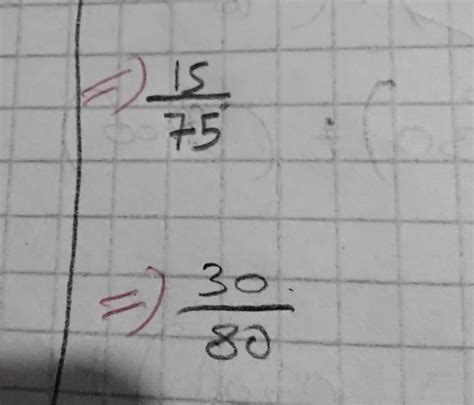 => 15/75
=> 30/80